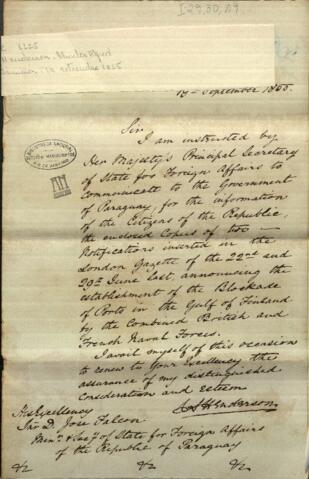 I-29,30,
19 September 1855.
Sir
I am instructed by
Her Majesty's Principal Secretary
of State for Foreign Affairs to
communicate to the Government
of Paraguay, for the information
of the Citizens of the Republic,
the enclosed Copies of two
Notifications inserted in the
London Gazette of the 22nd and
29th June last, announcing the
establishment of the Blockade
of Ports in the Gulf of Finland
by the Combined British and
French Naval Forces.
I avail myself of this occasion
to renew to Your Excellency the
assurance of my distinguished
Consideration and esteem
Henderson
His Excellency
Sor. D. Jose Falcon
of State for Foreign Affairs
of the Republic of Paraguay